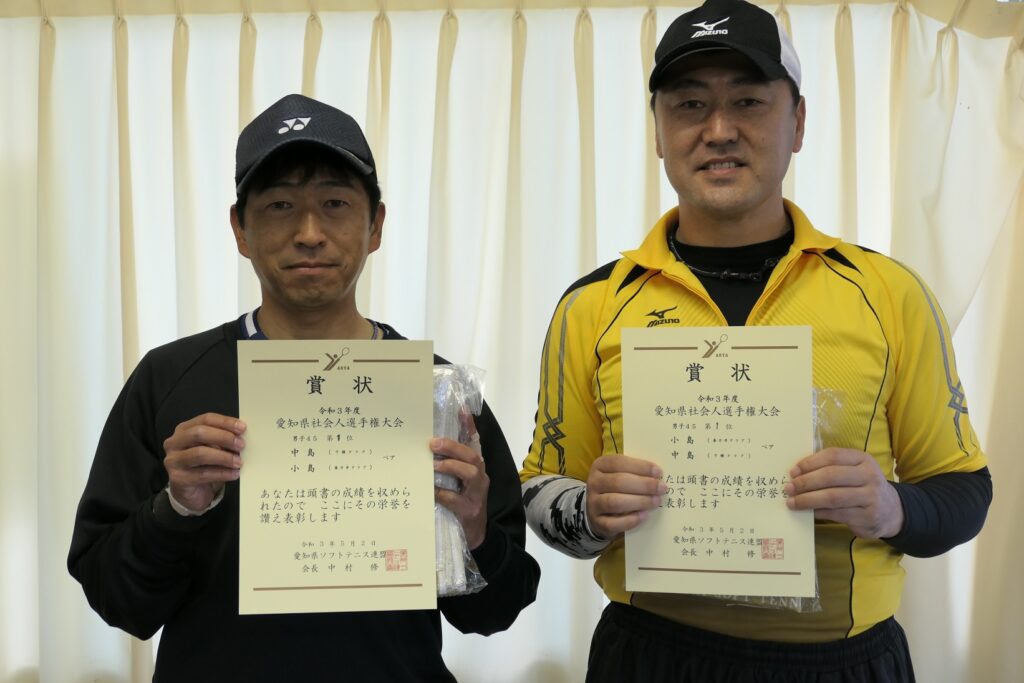 MIZUNO
MIZUNO
ASTA
賞状
令和3年度
愛知県社会人選手権大会
男子45 第1位
中島 (千種クラブ)
小島
ペア
あなたは頭書の成績を収めら
れたので ここにその栄誉を
讃え表彰します
令和3年5月2日
愛知県ソフトテニス連盟
会長 中村 修
ASTA
賞状
令和3年度
愛知県社会人選手権大会
男子45 第1位
小島
中島 (千種クラブ)
ペア
あなたは頭書の成績を収めら
たので ここにその栄誉を
え表彰します
令和3年5月2日
愛知県ソフトテニス連盟
会長 中村 修